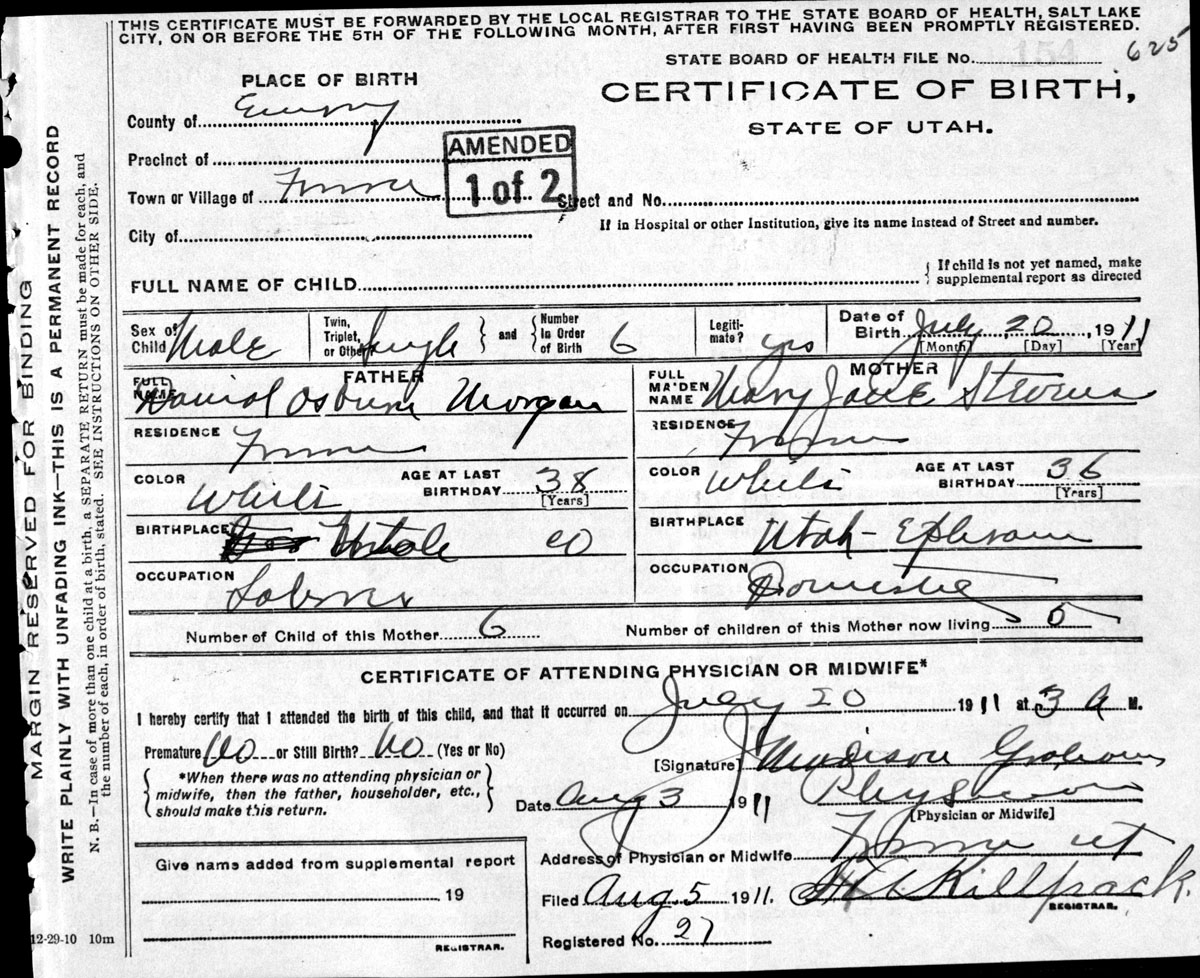 THIS CERTIFICATE MUST BE FORWARDED BY THE LOCAL REGISTRAR TO THE STATE BOARD OF HEALTH, SALT LAKE
CITY, ON OR BEFORE THE 5TH OF THE FOLLOWING MONTH, AFTER FIRST HAVING BEEN PROMPTLY REGISTERED.
STATE BOARD OF HEALTH FILE No. 625
PLACE OF BIRTH
CERTIFICATE OF BIRTH,
STATE OF UTAH.
County of Emery
AMENDED
1 of 2
Precinct of
Town or Village of Ferron
Street and No.
If in Hospital or other Institution, give its name Instead of Street and number.
City of
FULL NAME OF CHILD
{ If child is not yet named, make
supplemental report as directed
Sex of Child Male
Twin, Triplet, or Other Single } and { Number In Order of Birth 6
Legiti-mate? yes
Date of Birth July 20, 1911
[Month] [Day] [Year]
FATHER
FULL NAME Osburn Morgan
RESIDENCE Ferron
COLOR White
AGE AT LAST BIRTHDAY 38
[Years]
BIRTHPLACE
OCCUPATION Laborer
MOTHER
FULL MAIDEN NAME Mary Jane Stevens
RESIDENCE Ferron
COLOR White
AGE AT LAST BIRTHDAY 36
[Years]
BIRTHPLACE Utah - Ephraim
OCCUPATION Domestic
Number of Child of this Mother 6
Number of children of this Mother now living
CERTIFICATE OF ATTENDING PHYSICIAN OR MIDWIFE*
I hereby certify that I attended the birth of this child, and that it occurred on July 20 1911 at 3 A M.
Premature No or Still Birth? No (Yes or No)
{ *When there was no attending physician or
midwife, then the father, householder, etc.,
should make this return. }
[Signature] Madison Graham
Date Aug 3 1911
Physician
[Physician or Midwife]
Give name added from supplemental report
19
REGISTRAR.
Address of Physician or Midwife Ferron Ut
Filed Aug 5 1911. Killpack.
REGISTRAR.
Registered No. 27
12-29-10 10m
MARGIN RESERVED FOR BINDING
WRITE PLAINLY WITH UNFADING INK—THIS IS A PERMANENT RECORD
N. B.—In case of more than one child at a birth, a SEPARATE RETURN must be made for each, and
the number of each, in order of birth, stated. SEE INSTRUCTIONS ON OTHER SIDE.